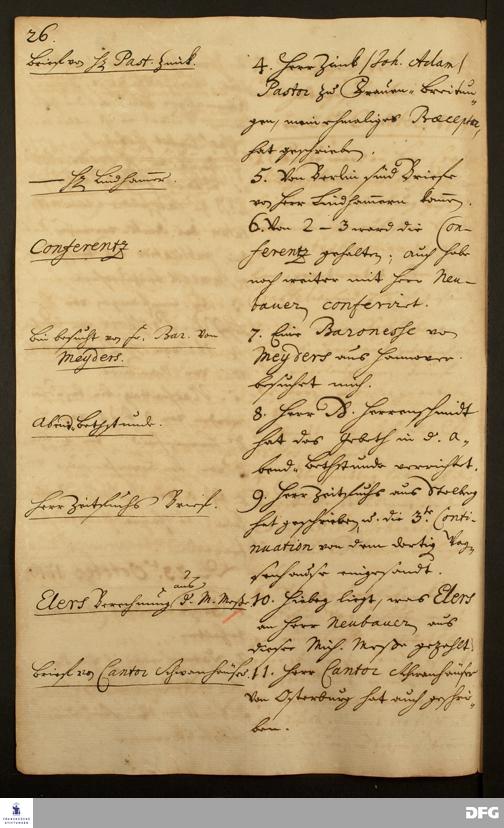 26.
Brief von H. Past. Zinck.
4. Herr Zinck /Joh. Adam/
Pastor zu Frauen-Breitun-
gen, mein ehmaliges Præceptor,
hat geschrieben.
— H. Lindhammer.
5. Von Berlin sind Briefe
von Herr Lindhammern kommen.
Conferentz.
6. Von 2–3 ward die Con-
ferentz gehalten; auch habe
noch weiter mit Herr Neu-
bauer conferirt.
Bin besucht von Fr. Bar. von
Meyders.
7. Eine Baronesse von
Meyders aus Hannover
besuchet mich.
Abend-Bethstunde.
8. Herr D. Herrenschmidt
hat das Gebeth in d. A-
bend-Bethstunde verrichtet.
Herr Zeitfuchs Brief.
9. Herr Zeitfuchs aus Stolberg
hat geschrieben, u. die 3te Conti-
nuation von dem dortig. Way-
senhause eingesandt.
Elers Berechnung aus d. M. Meße.
10. Hiebey liegt, was Elers
an Herr Neubauer aus
dieser Mich. Meße gezahlt.
Brief von Cantor Schwanhäuser.
11. Herr Cantor Schwanhäuser
von Osterburg hat auch geschrie-
ben.
FRANCKESCHE
STIFTUNGEN
DFG